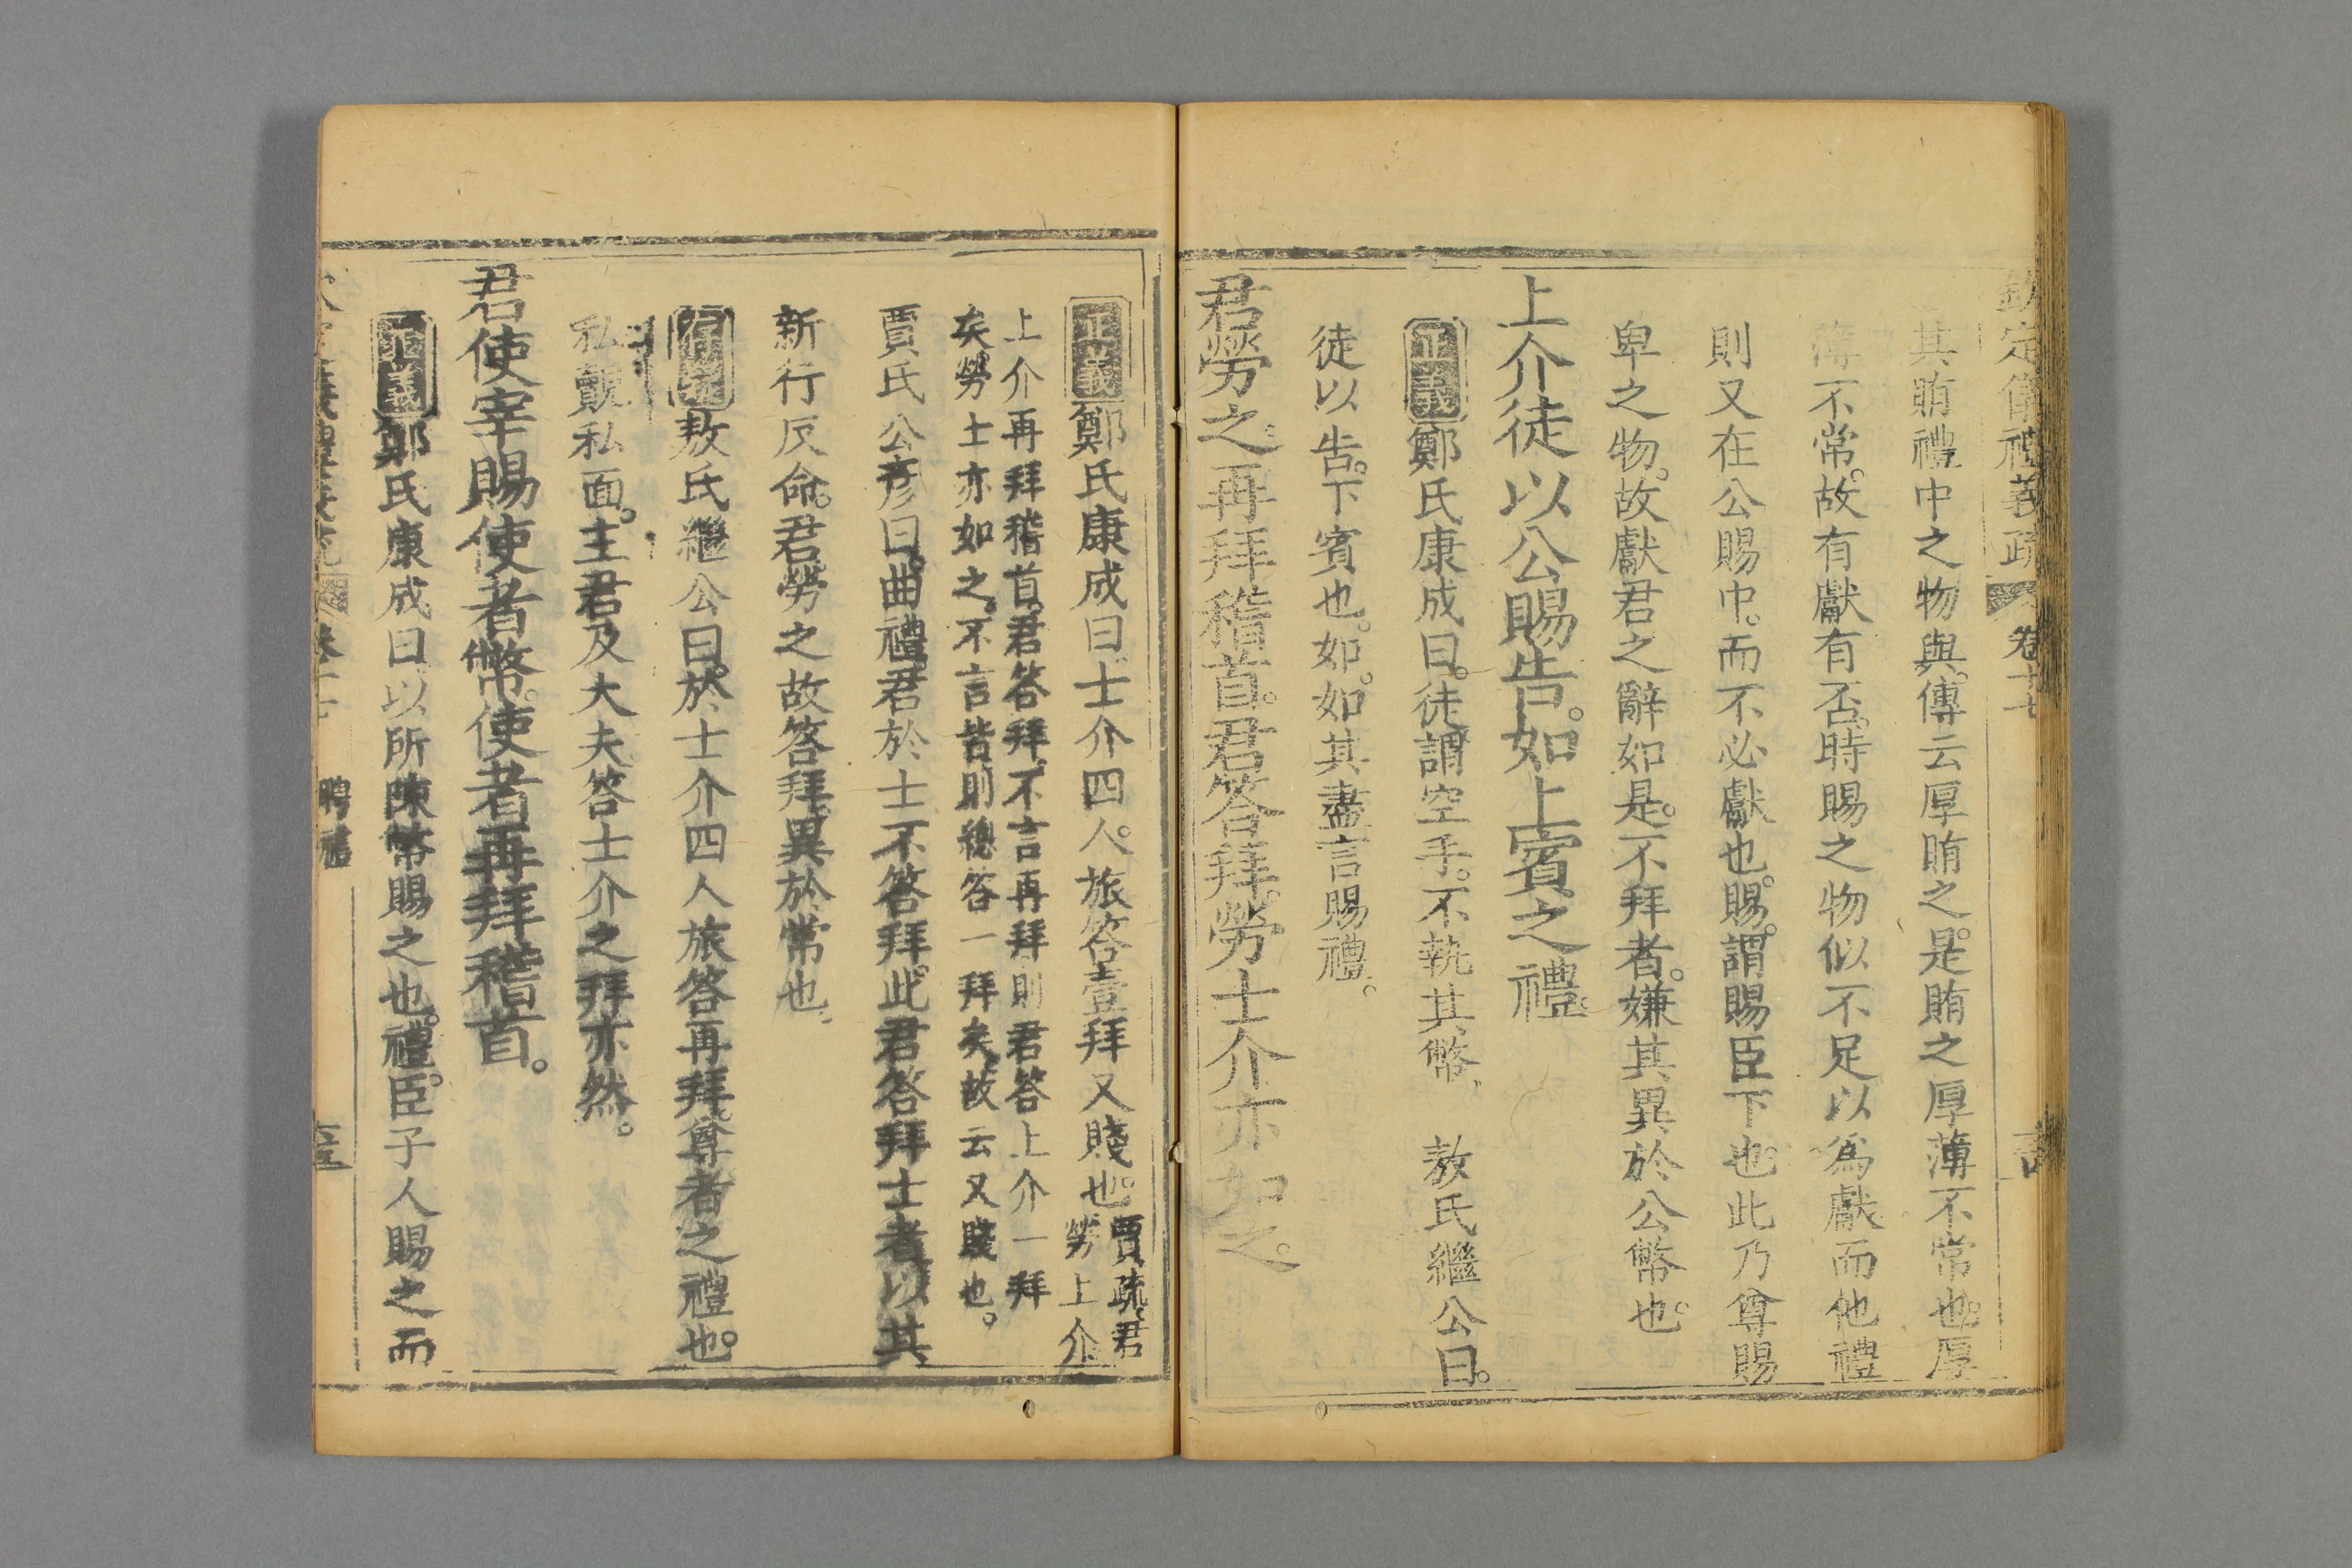 欽定儀禮義疏 卷十七
其賄禮中之物與。傳云厚賄之。是賄之厚薄不常也。厚
薄不常。故有獻有否。時賜之物似不足以爲獻而他禮
則又在公賜中。而不必獻也。賜。謂賜臣下也。此乃尊賜
卑之物。故獻君之辭如是。不拜者。嫌其異於公幣也。
上介徒以公賜告。如上賓之禮。
正義鄭氏康成曰。徒。謂空手。不執其幣。 敖氏繼公曰。
徒以告。下賓也。如。如其盡言賜禮。
君勞之。再拜稽首。君答拜。勞士介亦如之。
正義鄭氏康成曰。士介四人。旅答壹拜。又賤也。賈疏。君
勞上介
上介再拜稽首。君答拜。不言再拜。則君答上介一拜
矣。勞士亦如之。不言皆則總答一拜矣。故云又賤也。
賈氏公彥曰。曲禮。君於士不答拜。此君答拜士者。以其
新行反命。君勞之故答拜。異於常也。
敖氏繼公曰。於士介四人旅答再拜。尊者之禮也。
私覿私面。主君及大夫答士介之拜亦然。
君使宰賜使者幣。使者再拜稽首。
正義鄭氏康成曰。以所陳幣賜之也。禮。臣子人賜之而
聘禮